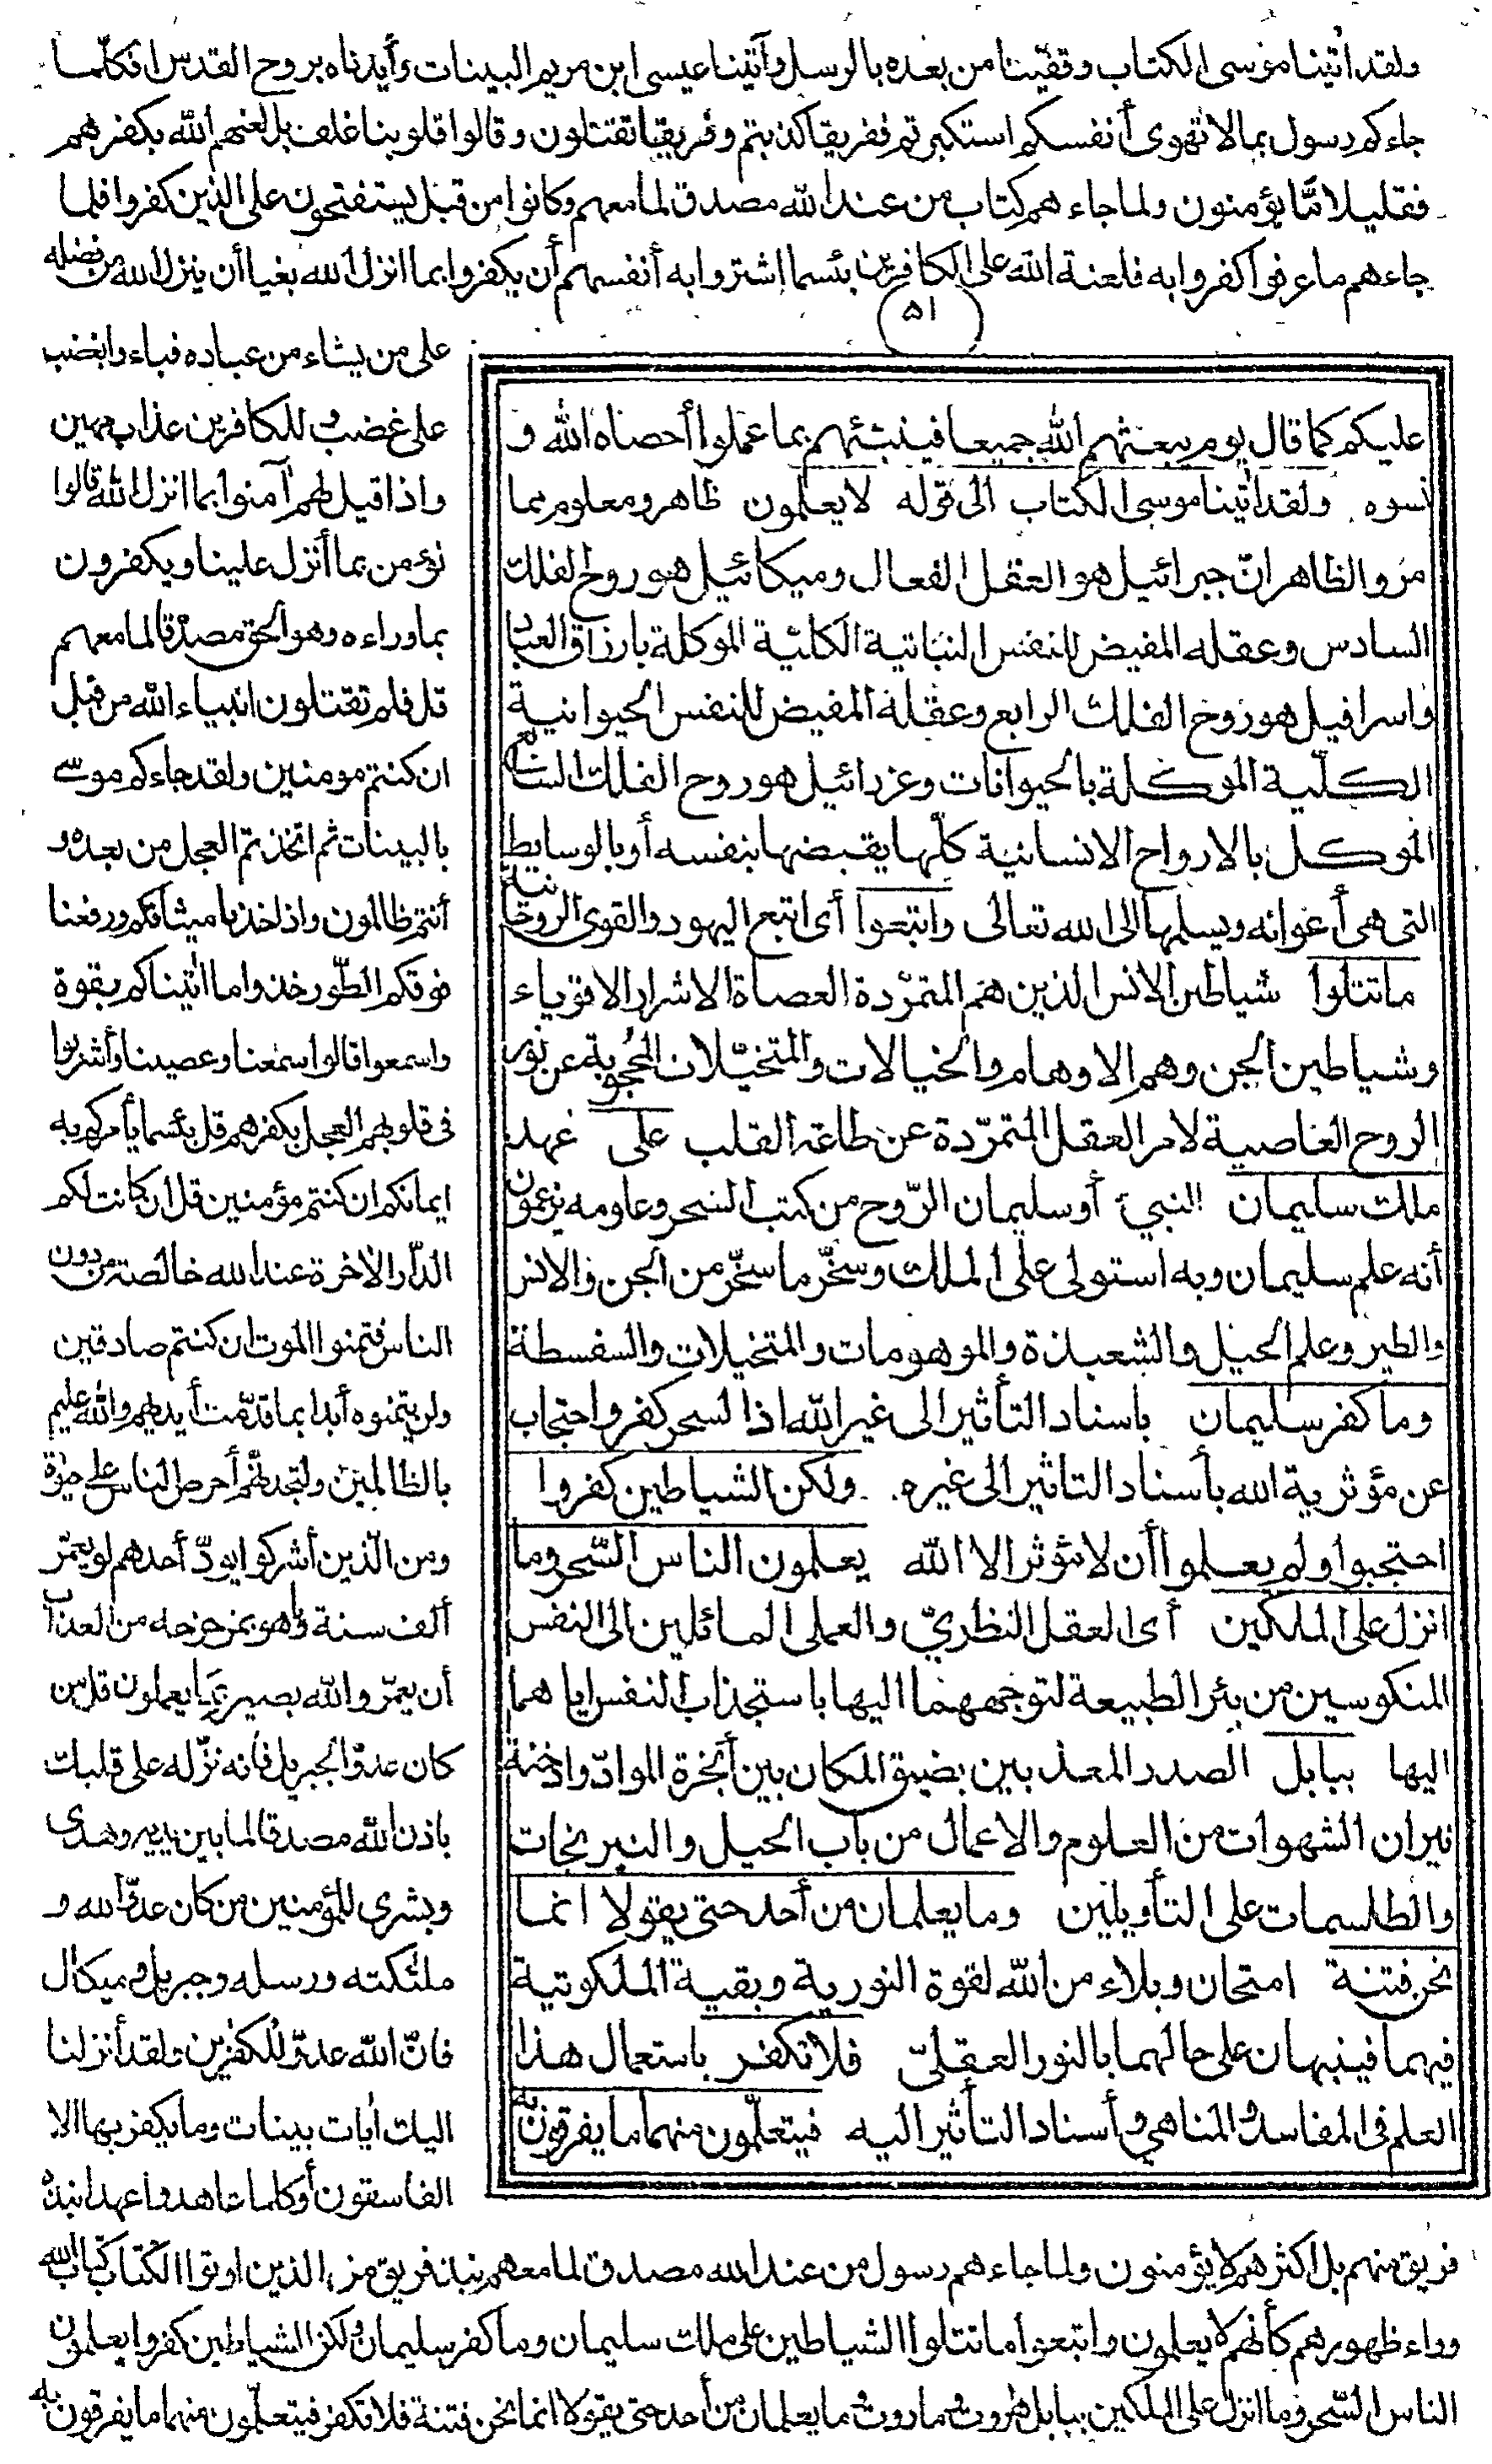 ولقد اٰتينا موسى الكتاب وقفّينا من بعده بالرسل وآتينا عيسى ابن مريم البينات وأيدناه بروح القدس افكلّما
جاءكم رسول بما لا تهوى أنفسكم استكبرتم ففريقا كذبتم وفريقا تقتلون وقالوا قلوبنا غلف بل لعنهم الله بكفرهم
فقليلا مّا يؤمنون ولما جاءهم كتاب من عند الله مصدق لما معهم وكانوا من قبل يستفتحون على الذين كفروا فلما
جاءهم ما عرفوا كفروا به فلعنة الله على الكافرين بئسما اشتروا به أنفسهم أن يكفروا بما انزل الله بغيا أن ينزل الله من فضله
٥١
على من يشاء من عباده فباءوا بغضب
على غضب وللكافرين عذاب مهين
واذا قيل لهم آمنوا بما انزل الله قالوا
نؤمن بما أنزل علينا ويكفرون
بما وراءه وهو الحق مصدّقا لما معهم
قل فلم تقتلون انبياء الله من قبل
ان كنتم مومنين ولقد جاءكم موسى
بالبينات ثم اتخذتم العجل من بعده و
أنتم ظالمون واذ اخذنا ميثاقكم ورفعنا
فوقكم الطّور خذوا ما اٰتيناكم بقوة
واسمعوا قالوا سمعنا وعصينا وأشربوا
فى قلوبهم العجل بكفرهم قل بئسما يأمركم به
ايمانكم ان كنتم مؤمنين قل ان كانت لكم
الدّار الاٰخرة عند الله خالصة من دون
الناس فتمنوا الموت ان كنتم صادقين
ولن يتمنوه أبدا بما قدّمت أيديهم والله عليم
بالظالمين ولتجدنّهم أحرص الناس على حيٰوة
ومن الّذين أشركوا يودّ أحدهم لو يعمّر
ألف سنة وما هو بمزحزحه من العذاب
أن يعمّر والله بصير بما يعملون قل من
كان عدوّا لجبريل فانه نزّله على قلبك
باذن الله مصدقا لما بين يديه وهدى
وبشرى للمؤمنين من كان عدوّا لله و
ملئكته ورسله وجبريل وميكال
فانّ الله عدوّ للكٰفرين ولقد أنزلنا
اليك اٰيات بينات وما يكفر بها الا
الفاسقون أوكلما عاهدوا عهدا نبذه
عليكم كما قال يوم يبعثهم الله جميعا فينبئهم بما عملوا أحصاه الله و
نسوه ولقد اٰتينا موسى الكتاب الى قوله لا يعلمون ظاهر ومعلوم بما
مرّ والظاهر انّ جبرائيل هو العقل الفعال وميكائيل هو روح الفلك
السادس وعقله المفيض للنفس النباتية الكلّية الموكلة بارزاق العباد
واسرافيل هو روح الفلك الرابع وعقله المفيض للنفس الحيوانية
الكلّية الموكلة بالحيوانات وعزرائيل هو روح الفلك السابع
الموكل بالارواح الانسانية كلّها يقبضها بنفسه أو بالوسايط
التى هى أعوانه ويسلمها الى الله تعالى واتبعوا أى اتبع اليهود والقوى الروحانية
ما تتلوا شياطين الانس الذين هم المتمرّدة العصاة الاشرار الاقوياء
وشياطين الجن وهم الاوهام والخيالات والمتخيّلات المحجوبة عن نور
الروح العاصية لامر العقل المتمرّدة عن طاعة القلب على عهد
ملك سليمان النبيّ أو سليمان الرّوح من كتب السحر وعلومه يزعمون
أنه علم سليمان وبه استولى على الملك وسخّر ما سخّر من الجن والانس
والطير وعلم الحيل والشعبذة والموهومات والمتخيلات والسفسطة
وما كفر سليمان باسناد التأثير الى غير الله اذ السحر كفر واحتجاب
عن مؤثرية الله بأسناد التاثير الى غيره ولكن الشياطين كفروا
احتجبوا ولم يعلموا أن لا مؤثر الا الله يعلمون الناس السّحر وما
انزل على الملكين أى العقل النظريّ والعملى المائلين الى النفس
المنكوسين من بئر الطبيعة لتوجههما اليها باستجذاب النفس اياهما
اليها ببابل الصدر المعذبين بضيق المكان بين أبخرة الموادّ وادخنة
نيران الشهوات من العلوم والاعمال من باب الحيل والنيرنجات
والطلسمات على التأويلين وما يعلمان من أحد حتى يقولا انما
نحن فتنة امتحان وبلاء من الله لقوة النورية وبقية الملكوتية
فيهما فينبهان على حالهما بالنور العقلىّ فلا تكفر باستعمال هذا
العلم فى المفاسد والمناهى وأسناد التأثير اليه فيتعلّمون منهما ما يفرقون به
فريق منهم بل اكثرهم لا يؤمنون ولما جاءهم رسول من عند الله مصدق لما معهم نبذ فريق من الذين اوتوا الكتاب كتاب الله
وراء ظهورهم كأنهم لا يعلمون واتبعوا ما تتلوا الشياطين على ملك سليمان وما كفر سليمان ولكن الشياطين كفروا يعلمون
الناس السّحر وما انزل على الملكين ببابل هٰروت وماروت وما يعلمان من أحد حتى يقولا انما نحن فتنة فلا تكفر فيتعلّمون منهما ما يفرقون به